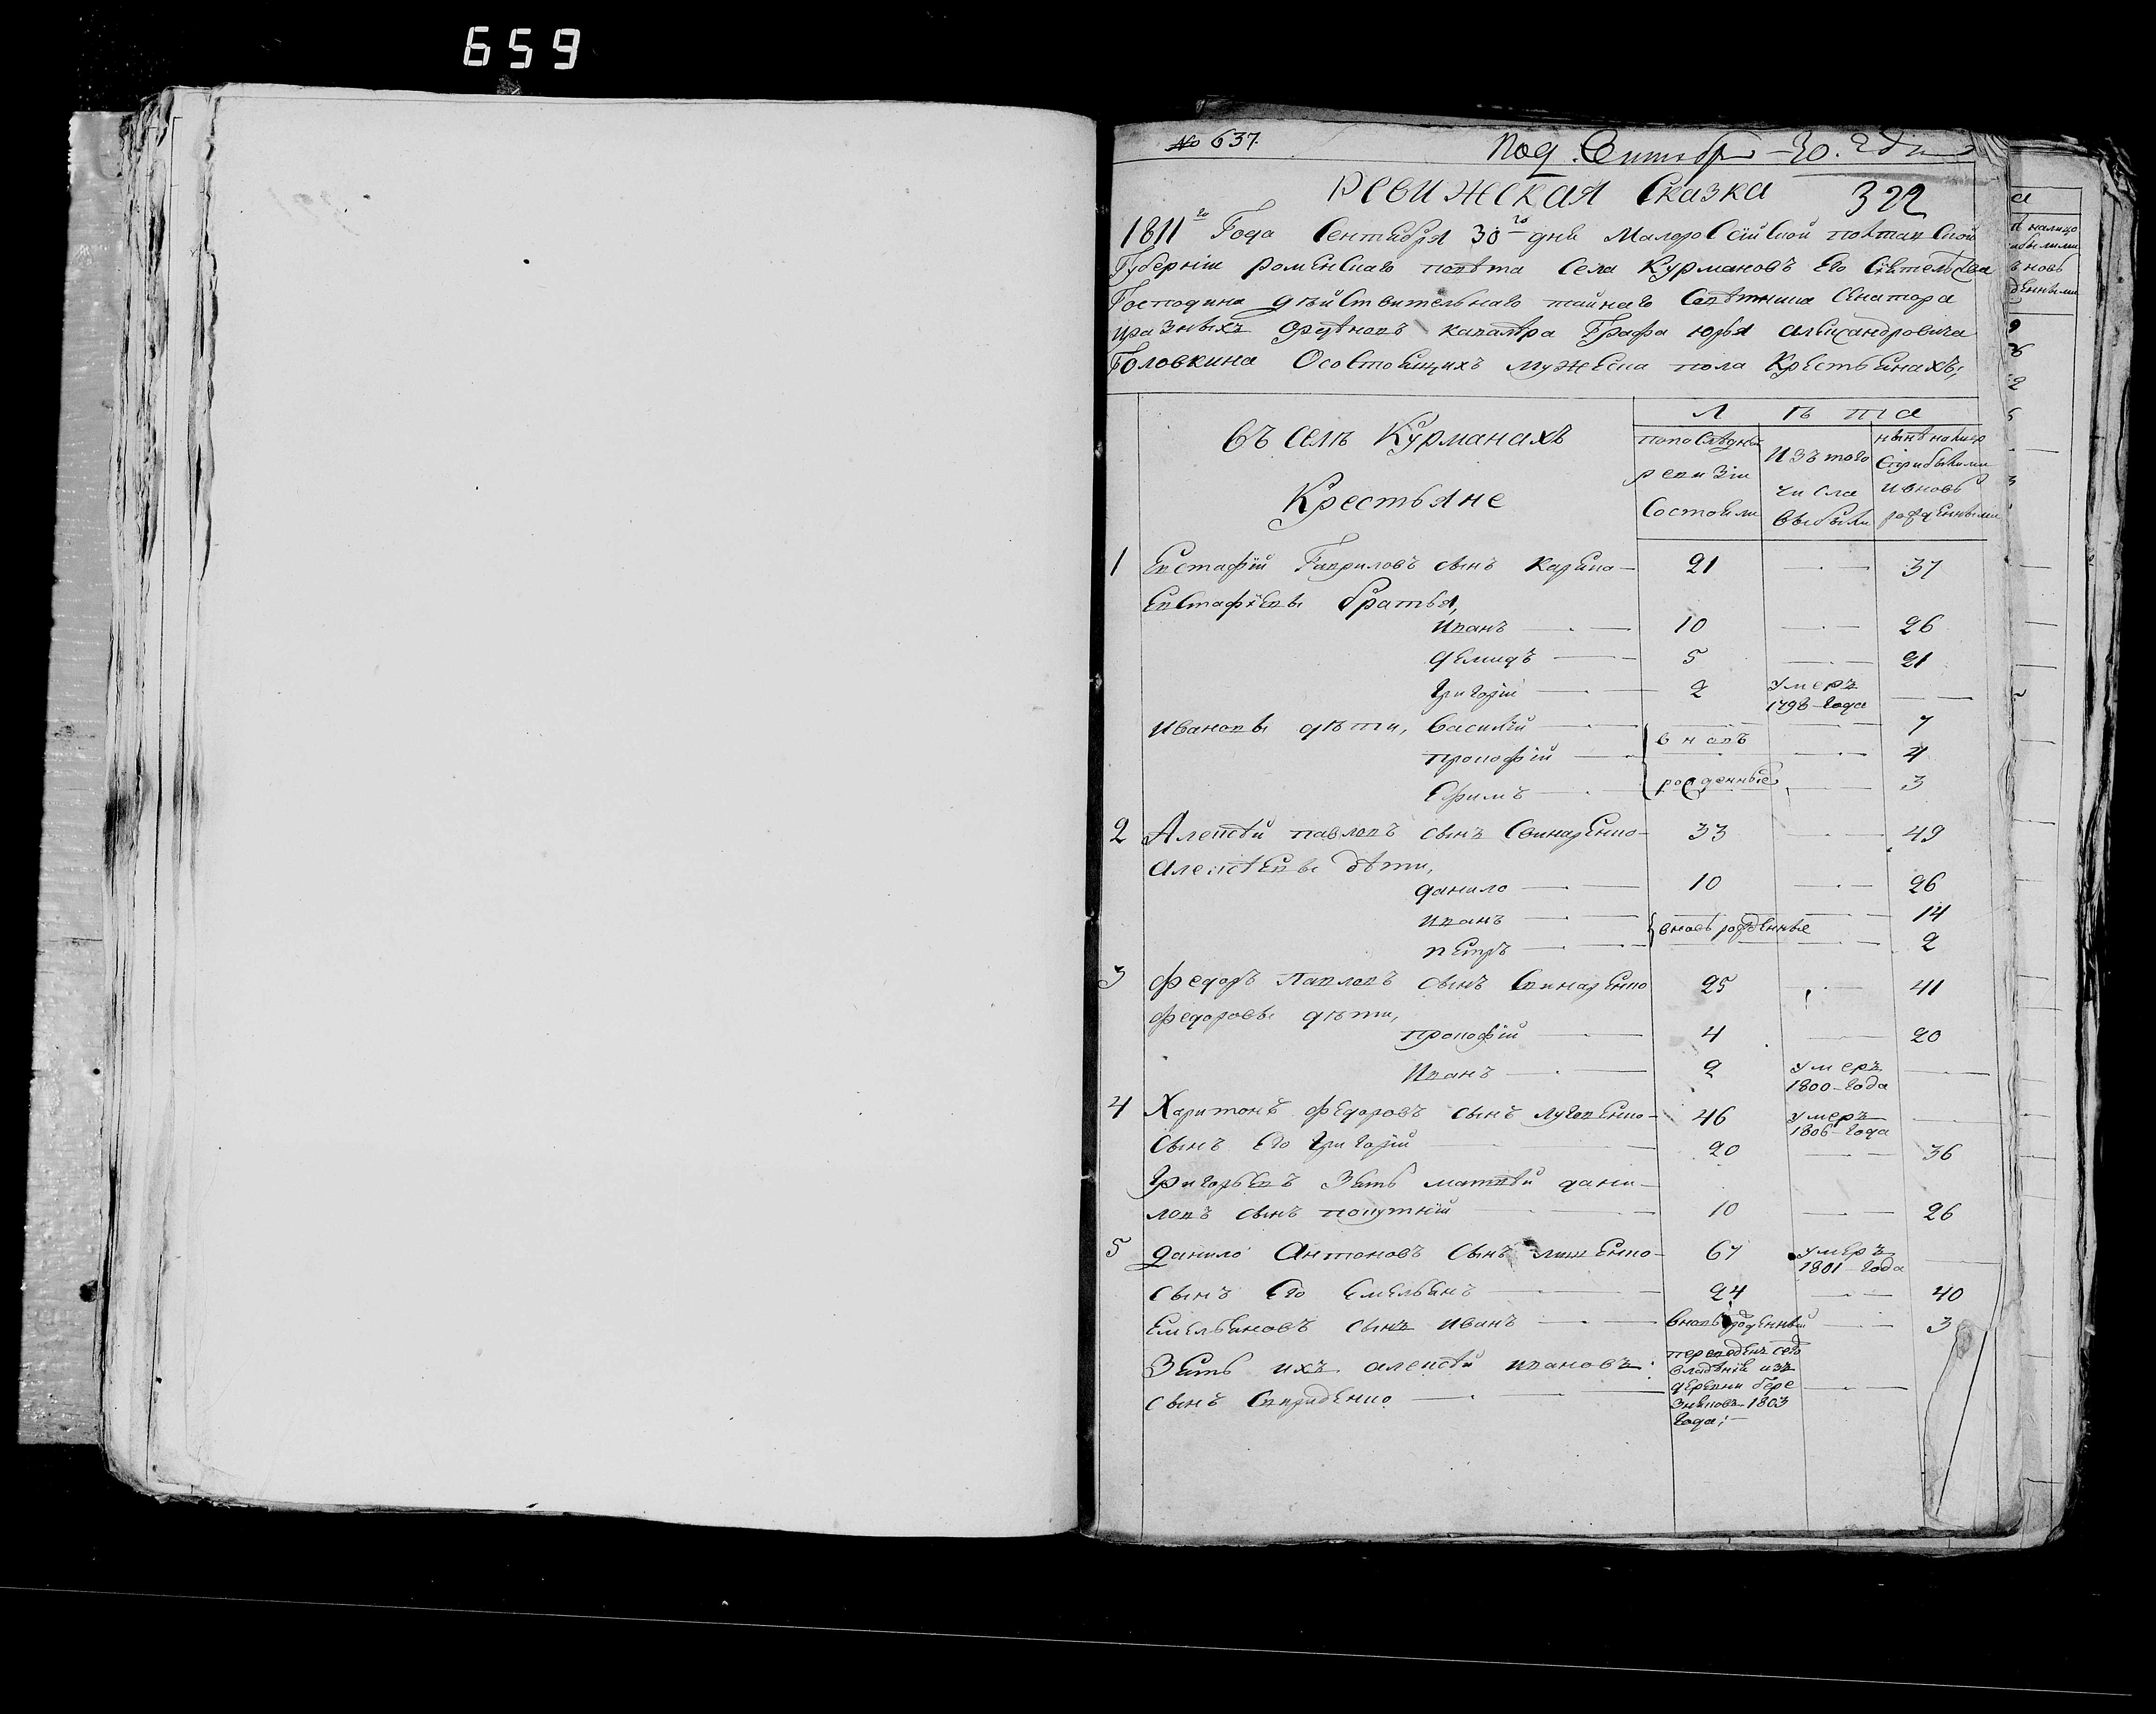 659
№ 637.
Под. Сентября 30. Дня
РЕВИЖСКАЯ Сказка 322
1811го Года Сентября 30го дня Малороссійской полтавской
Губерніи роменскаго повѣта села Курмановъ Его Сіятельства
Господина дѣйствительнаго тайнаго Совѣтника Сенатора
и разныхъ орденовъ кавалѣра Графа юрья александровича
Головкина О состоящихъ мужеска пола Крестьянахъ,
Л ѣ т а
въ селѣ Курманахъ
Крестьяне
попослѣдней ревизіи Состояли
Изъ того числа выбыли
нынѣ налицо
сприбылыми
и вновь
рожденными
1 Евстафій Гавриловъ сынъ 21 — 37
Евстафіевы братья,
Иванъ — 10 — 26
демидъ — 5 — 21
Григорій — 2 умеръ 1798 года —
Ивановы дѣти, василій — вновь — 7
прокофій — — 4
Ефимъ — рожденные — 3
2 Алексѣй павловъ сынъ Свинаренко 33 — 49
алексѣевы дѣти,
данило — 10 — 26
иванъ — вновь рожденные 14
петръ — 2
3 федоръ павловъ сынъ Свинаренко 25 — 41
федоровы дѣти,
прокофій — 4 — 20
Иванъ — 2 умеръ 1800 года —
4 Харитонъ федоровъ сынъ 46 умеръ 1806 года —
сынъ Его Григорій — 20 — 36
Григорьевъ Зять матвѣй дани-
ловъ сынъ попутній — 10 — 26
5 данило Антоновъ сынъ 67 умеръ 1801 года —
сынъ Его Емельянъ — 24 — 40
Емельяновъ сынъ иванъ — вновьрожденный — 3
Зять ихъ алексѣй ивановъ переведенъ сего
владѣнія изъ
сынъ Свириденко — деревни бере
зняковъ 1803
года; —
а
налицо
былыми
вновь
денными